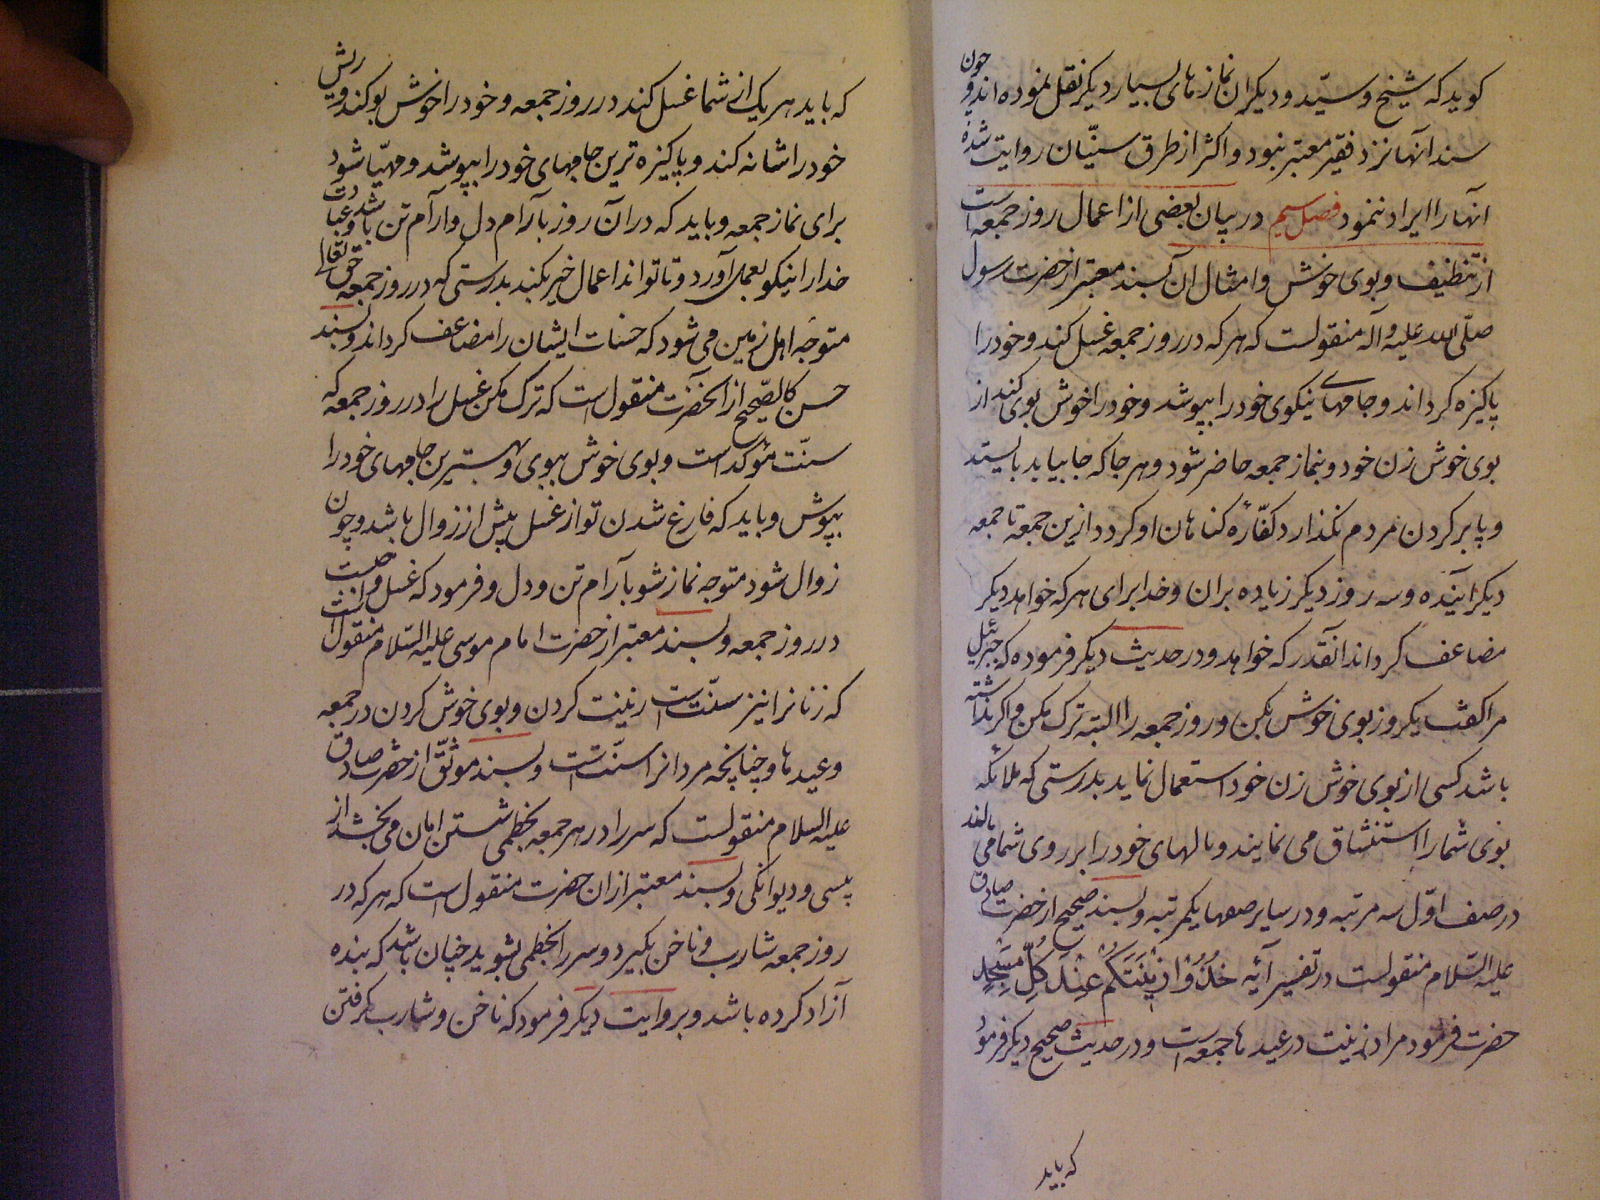 کوید که شیخ و سیّد و دیکران نمازهای بسیار دیکر نقل نموده اند و چون
سند آنها نزد فقیر معتبر نبود و اکثر از طرق سنّیان روایت شده
انها را ایراد ننمود فصل سیم در بیان بعضی از اعمال روز جمعه است
از تنظیف و بوی خوش و امثال ان بسند معتبر از حضرت رسول
صلّی الله علیه و آله منقولست که هر که در روز جمعه غسل کند و خود را
پاکیزه کرداند و جامهای نیکوی خود را بپوشد و خود را خوش بوی کند از
بوی خوش زن خود و بنماز جمعه حاضر شود و هر جا که جا بیابد بایستد
و پا بر کردن مردم نکذارد کفّاره کناهان او کردد ازین جمعه تا جمعه
دیکر آینده و سه روز دیکر زیاده بران و خدا برای هر که خواهد دیکر
مضاعف کرداند انقدر که خواهد و در حدیث دیکر فرموده که جبرئیل
مرا کفت یکروز بوی خوش بکن و روز جمعه را البته ترک مکن و اکر نداشته
باشد کسی از بوی خوش زن خود استعمال نماید بدرستی که ملائکه
بوی شما را استنشاق می نمایند و بالهای خود را بر روی شما می مالند
در صف اوّل سه مرتبه و در سایر صفها یکمرتبه و بسند صحیح از حضرت صادق
علیه السّلام منقولست در تفسیر آیه خُذُوْا زِیْنَتَکُمْ عِنْدَ کُلِّ مَسْجِدٍ
حضرت فرمود مراد زینت در عیدها و جمعه است و در حدیث صحیح دیکر فرمود
که باید
که باید هر یک از شما غسل کند در روز جمعه و خود را خوش بو کند و ریش
خود را شانه کند و پاکیزه ترین جامهای خود را بپوشد و مهیّا شود
برای نماز جمعه و باید که در آن روز بآرام دل و آرام تن باشد و عبادت
خدا را نیکو بعمل آورد و تا تواند اعمال خیر بکند بدرستی که در روز جمعه حق تعالی
متوجّه اهل زمین می شود که حسنات ایشان را مضاعف کرداند و بسند
حسن کالصّحیح از آنحضرت منقول است که ترک مکن غسل را در روز جمعه که
سنّت مؤکد است و بوی خوش ببوی و بهترین جامهای خود را
بپوش و باید که فارغ شدن تو از غسل پیش از زوال باشد و چون
زوال شود متوجه نماز شو بآرام تن و دل و فرمود که غسل واجبست
در روز جمعه و بسند معتبر از حضرت امام موسی علیه السّلام منقول است
که زنانرا نیز سنّت است زینت کردن و بوی خوش کردن در جمعه
و عیدها و چنانچه مردانرا سنّت است و بسند موثّق از حضرت صادق
علیه السلام منقولست که سر را در هر جمعه بخطمی شستن امان می بخشد از
پیسی و دیوانکی و بسند معتبر از ان حضرت منقول است که هر که در
روز جمعه شارب و ناخن بکیرد و سر را بخطمی بشوید چنان باشد که بنده
آزاد کرده باشد و بروایت دیکر فرمود که ناخن و شارب کرفتن